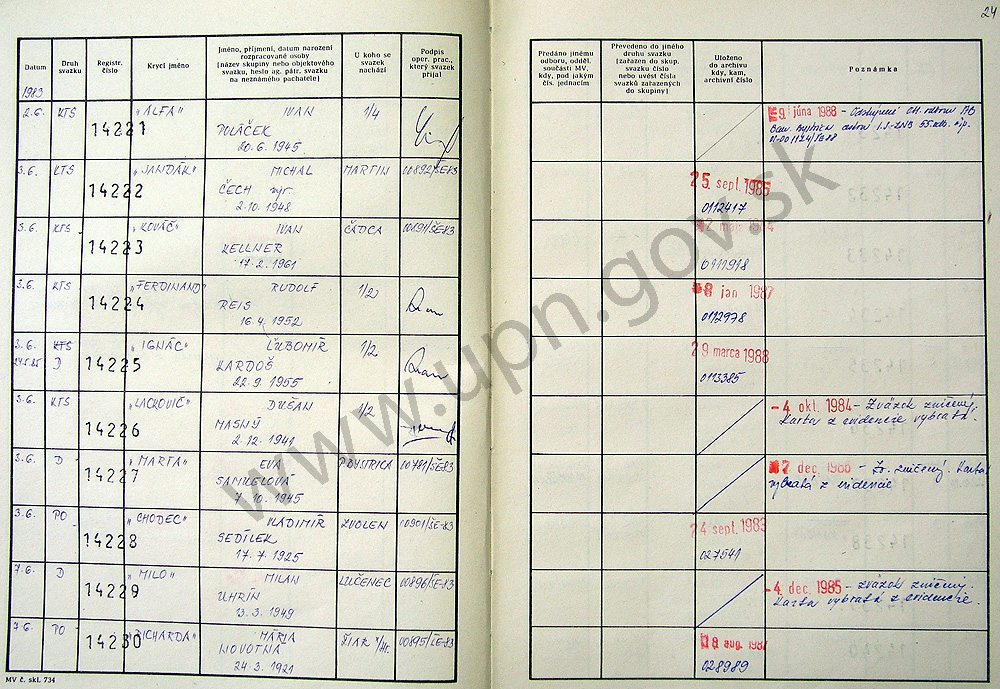 24
Datum
Druh svazku
Registr. číslo
Krycí jméno
Jméno, příjmení, datum narození
rozpracované osoby
(název skupiny nebo objektového
svazku, heslo ag. pátr. svazku
na neznámého pachatele)
U koho se
svazek
nachází
Podpis
oper. prac.,
který svazek
přijal
Předáno jinému
odboru, odděl.
součásti MV,
kdy, pod jakým
čís. jednacím
Převedeno do jiného
druhu svazku
(zařazen do skup.
svazku číslo
nebo uvést čísla
svazků zařazených
do skupiny)
Uloženo
do archivu
kdy, kam,
archivní číslo
Poznámka
1983
2.6. KTS 14221 "ALFA" IVAN 1/4
POLÁČEK
20.6.1945
9. júna 1988 - Odstúpené
3.6. KTS 14222 "JANDÁK" MICHAL MARTIN 00892/ŠE-83
ČECH
2.10.1948
25. sept. 1985
0112417
3.6. KTS 14223 "KOVÁČ" IVAN ČADCA
KELLNER
17.2.1961
3.6. KTS 14224 "FERDINAND" RUDOLF 1/2
REIS
16.4.1952
8 jan 1987
0112978
3.6. KTS 14225 "IGNÁC" ĽUBOMÍR 1/2
D
KARDOŠ
22.9.1955
29 marca 1988
0113385
3.6. KTS 14226 "LACKOVIČ" DUŠAN 1/2
MASNÝ
2.12.1941
-4 okt. 1984 - Zväzok zničený.
Karta z evidencie vybratá.
3.6. D 14227 "MARTA" EVA P. BYSTRICA
SAMUELOVÁ
7.10.1945
dec. 1986 - Zv. zničený. Karta
vybratá z evidencie
3.6. PO 14228 "CHODEC" VLADIMÍR ZVOLEN 00901/ŠE-83
SEDÍLEK
17.7.1925
24 sept. 1983
027541
7.6. D 14229 "MILO" MILAN LUČENEC 00896/ŠE-83
UHRÍN
13.3.1949
-4 dec. 1985 - Zväzok zničený.
Karta vybratá z evidencie.
7.6. PO 14230 "RICHARDA" MÁRIA ŽIAR n/Hr. 00895/ŠE-83
NOVOTNÁ
24.3.1921
18 aug. 1987
028989
MV č. skl. 734
www.upn.gov.sk